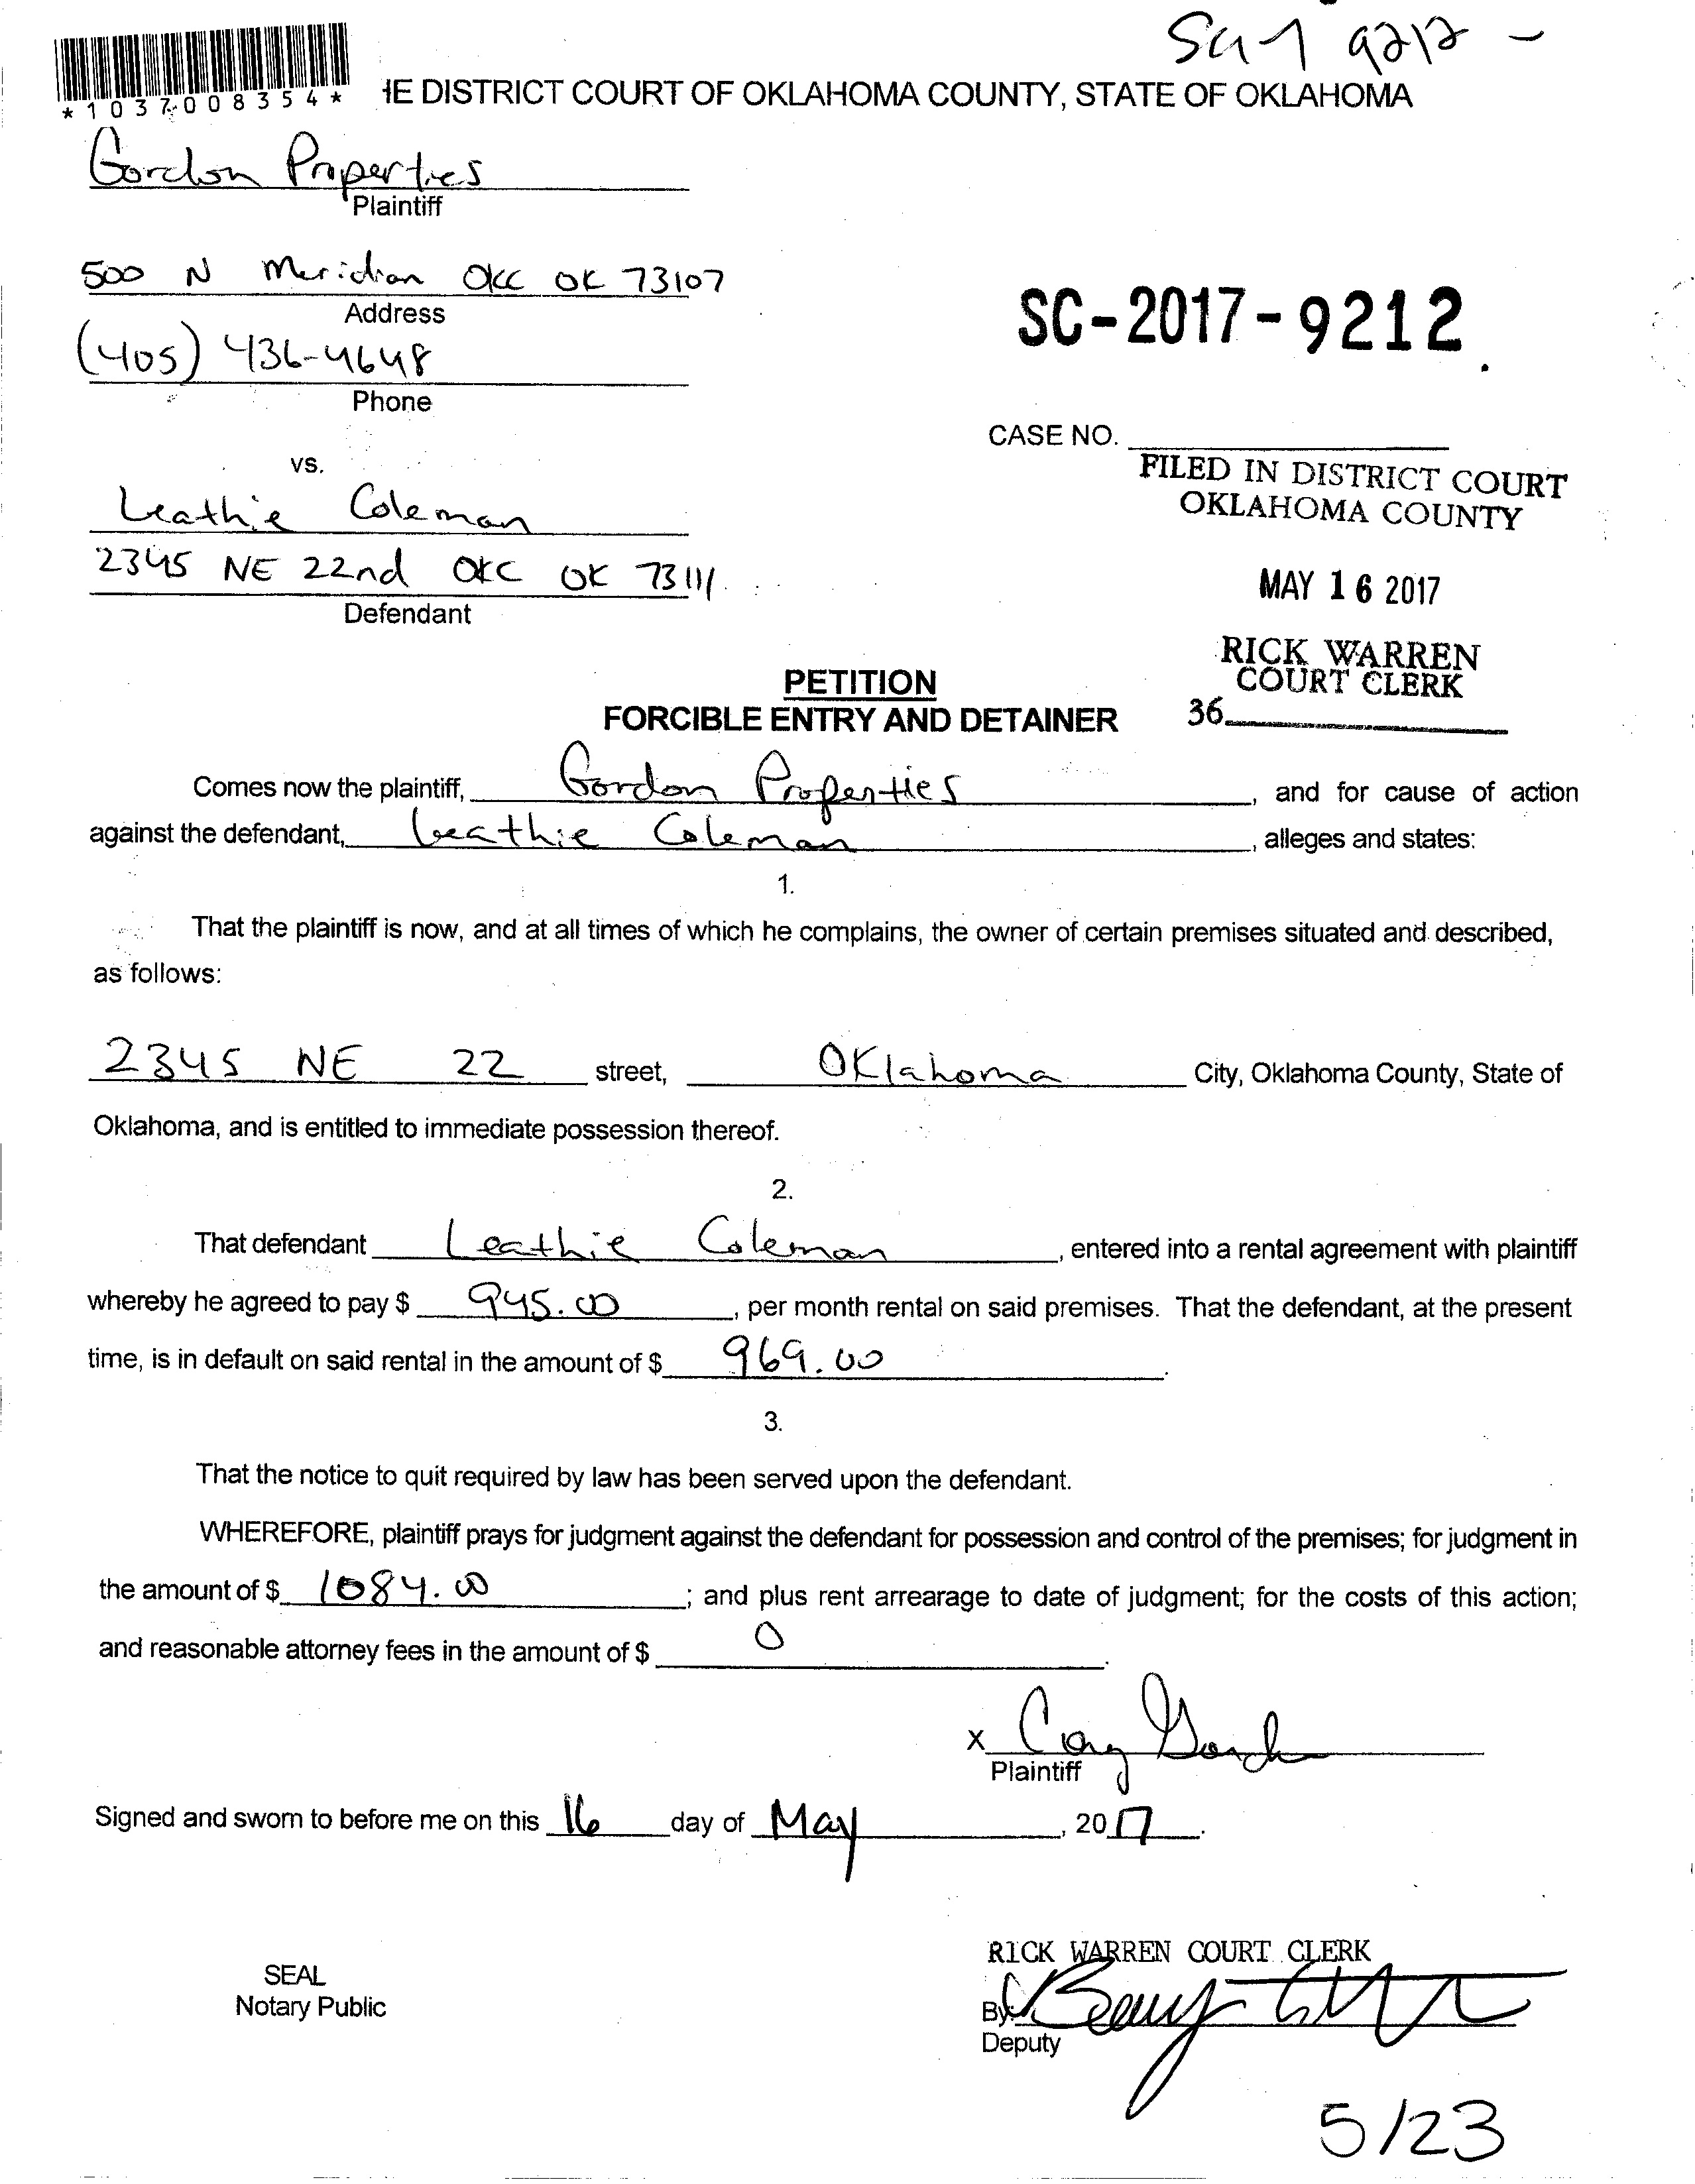 9212 -
*1037008354*
HE DISTRICT COURT OF OKLAHOMA COUNTY, STATE OF OKLAHOMA
Gordon Properties
Plaintiff
500 N Meridian OKC OK 73107
Address
(405) 436-4648
Phone
SC-2017-9212
CASE NO.
vs.
FILED IN DISTRICT COURT
OKLAHOMA COUNTY
Leathie Coleman
2345 NE 22nd OKC OK 73111
Defendant
MAY 16 2017
RICK WARREN
COURT CLERK
36
PETITION
FORCIBLE ENTRY AND DETAINER
Comes now the plaintiff, Gordon Properties, and for cause of action
against the defendant, Leathie Coleman, alleges and states:
1.
That the plaintiff is now, and at all times of which he complains, the owner of certain premises situated and described,
as follows:
2345 NE 22 street, Oklahoma City, Oklahoma County, State of
Oklahoma, and is entitled to immediate possession thereof.
2.
That defendant Leathie Coleman, entered into a rental agreement with plaintiff
whereby he agreed to pay $ 945.00, per month rental on said premises. That the defendant, at the present
time, is in default on said rental in the amount of $ 969.00.
3.
That the notice to quit required by law has been served upon the defendant.
WHEREFORE, plaintiff prays for judgment against the defendant for possession and control of the premises; for judgment in
the amount of $ 1084.00; and plus rent arrearage to date of judgment; for the costs of this action;
and reasonable attorney fees in the amount of $ 0.
X
Plaintiff
Signed and sworn to before me on this 16 day of May, 2017.
RICK WARREN COURT CLERK
SEAL
Notary Public
By:
Deputy
5/23